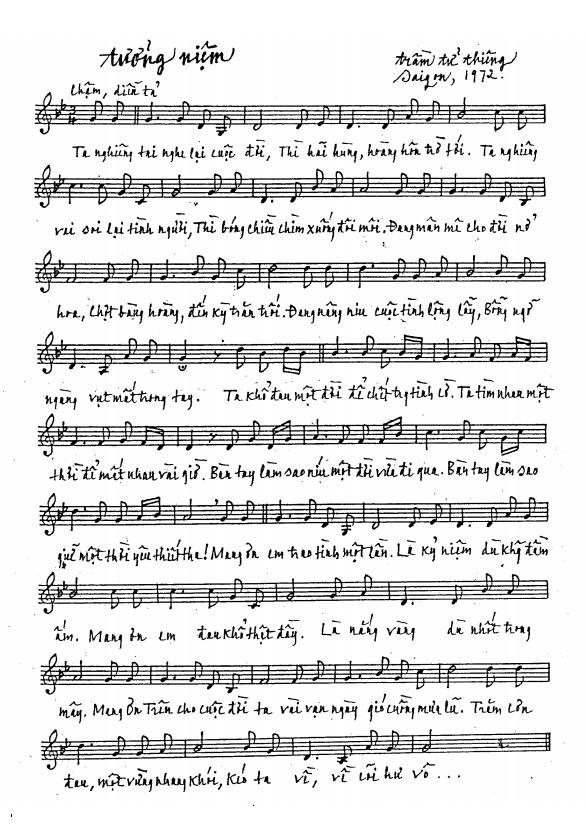 tưởng niệm
trầm tử thiêng
Saigon, 1972.
Chậm, diễn tả
Ta nghiêng tai nghe lại cuộc đời, Thì hãi hùng, hoàng hôn trờ tới. Ta nghiêng
vai soi lại tình người, Thì bóng chiều chìm xuống đôi môi. Đang mân mê cho đời nở
hoa, Chợt bàng hoàng, đến kỳ trăn trối. Đang nâng niu cuộc tình lộng lẫy, Bỗng ngỡ
ngàng vụt mất trong tay. Ta khổ đau một đời để chết trg tình cờ. Ta tìm nhau một
thời để mất nhau vài giờ. Bàn tay làm sao níu một đời vừa đi qua. Bàn tay làm sao
giữ một thời yêu thiết tha! Mang ơn em trao tình một lần. Là kỷ niệm dù khg đầm
ấm. Mang ơn em đau khổ thật đầy. Là nắng vàng dù nhốt trong
mây. Mang Ơn Trên cho cuộc đời ta vài vạn ngày gió cuồng mưa lũ. Trăm cơn
đau, một vùng nhang khói, Kéo ta về, về cõi hư vô ...